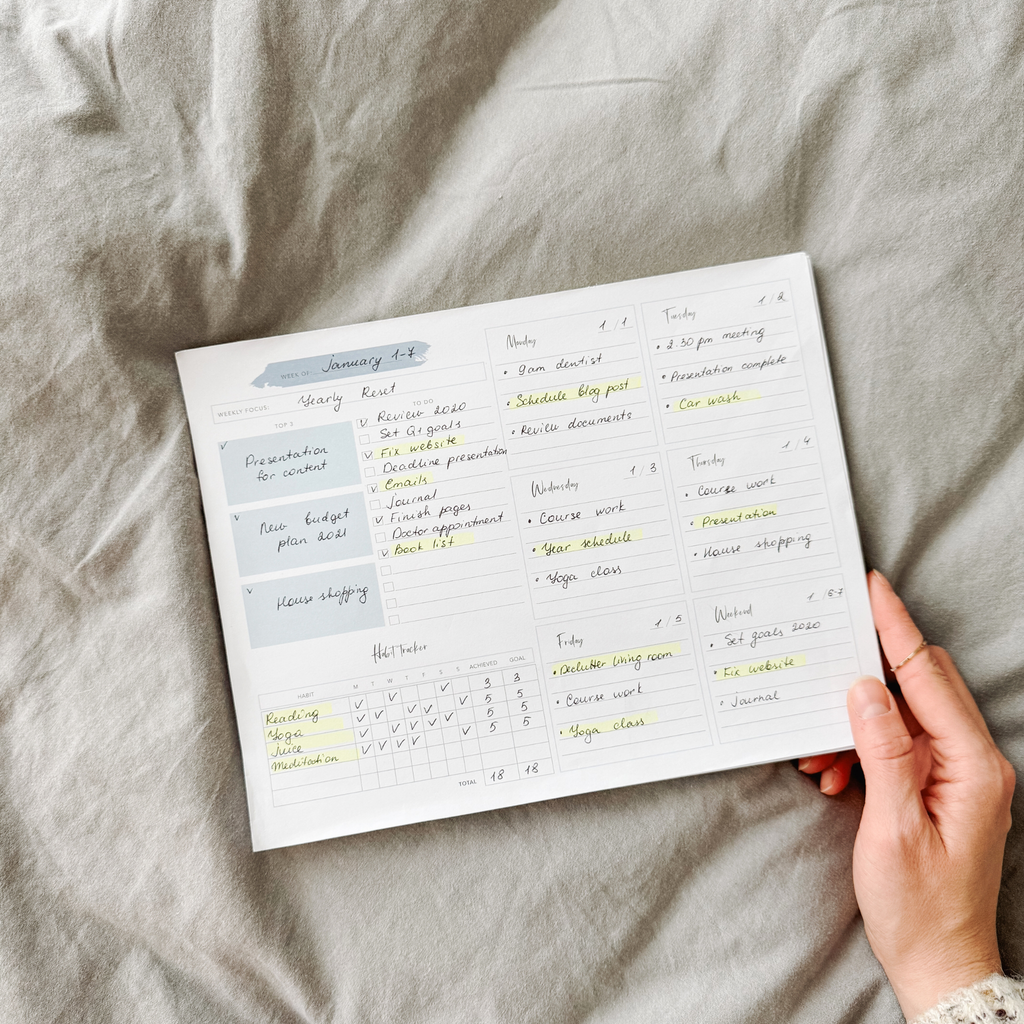 WEEK OF: January 1-7
WEEKLY FOCUS: Yearly Reset
TOP 3
v
Presentation
for content
v
New budget
plan 2021
v
House shopping
TO DO
v Review 2020
Set Q1 goals
v Fix website
Deadline presentation
v Emails
Journal
v Finish pages
Doctor appointment
v Book list
Habit Tracker
HABIT M T W T F S S ACHIEVED GOAL
Reading 3 3
Yoga 5 5
Juice 5 5
Meditation 5 5
TOTAL 18 18
Monday 1 / 1
• 9am dentist
• Schedule blog post
• Review documents
Tuesday 1 / 2
• 2.30 pm meeting
• Presentation complete
• Car wash
Wednesday 1 / 3
• Course work
• Year schedule
• Yoga class
Thursday 1 / 4
• Course work
• Presentation
• House shopping
Friday 1 / 5
• Declutter living room
• Course work
• Yoga class
Weekend 1 / 6-7
• Set goals 2020
• Fix website
• Journal